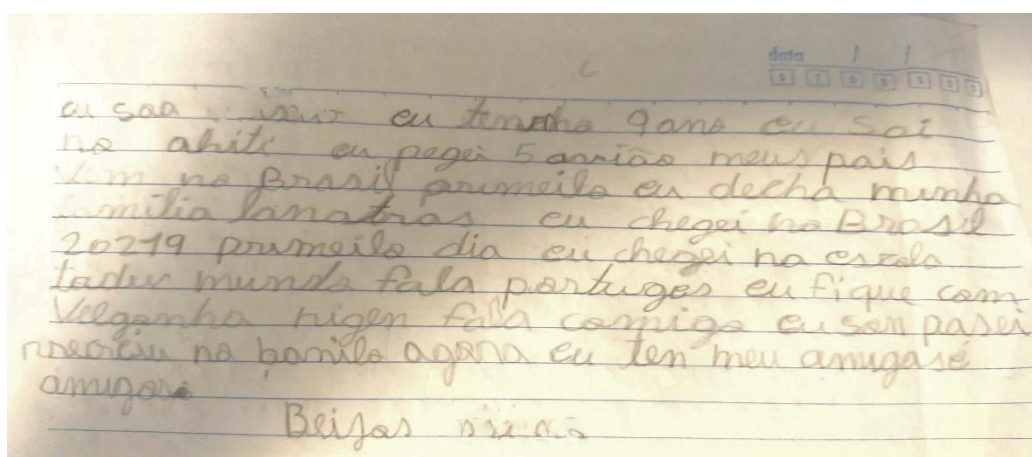 data / /
eu sou eu tenho 9 ano eu Sai
no ahiti eu pegei 5 avião meus pais
Vem no Brasil primeilo eu decha minha
família lanatras eu chegei no Brasil
20219 primeilo dia eu chegei na escola
todus mundo fala portuges eu fique com
Velgonha nigen fala comigo eu son pasei
no banilo agora eu ten meu amigas é
amigos
Beijos